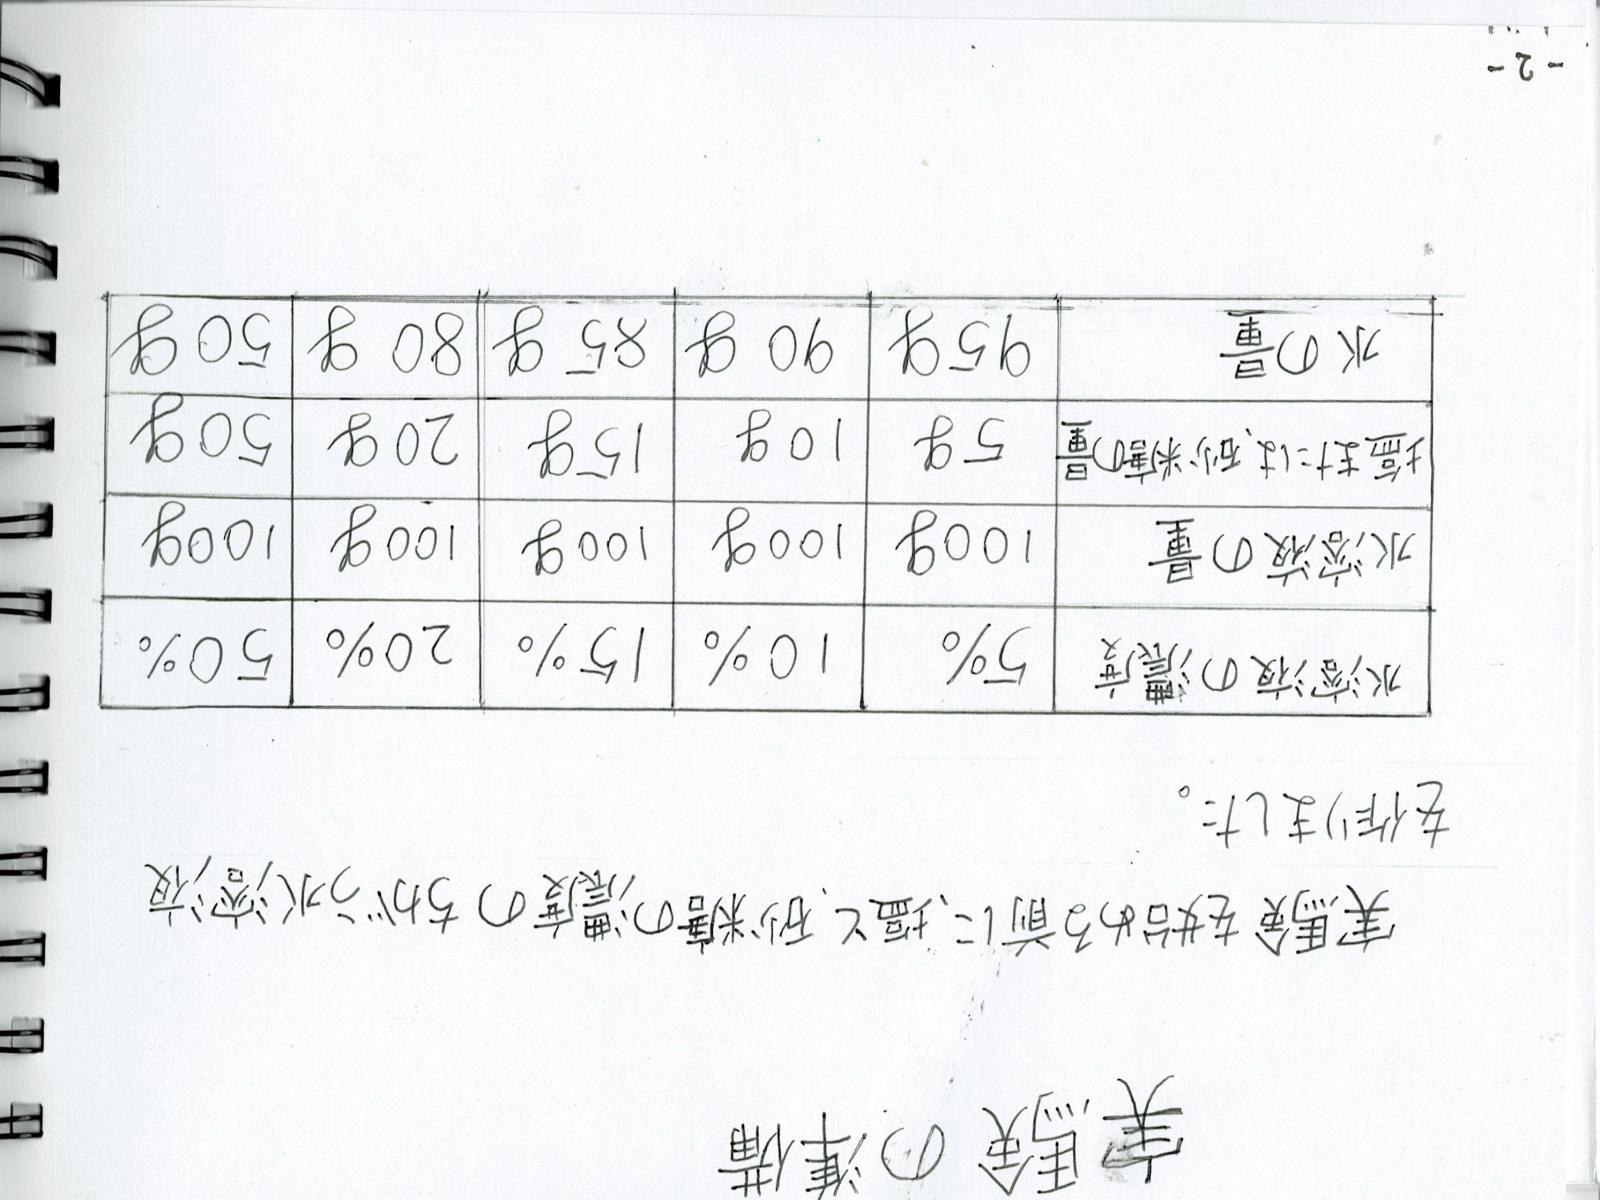 実験の準備
実験を始める前に、塩と、砂糖の濃度のちがう水溶液
を作りました。
水溶液の濃度 5% 10% 15% 20% 50%
水溶液の量 100g 100g 100g 100g 100g
塩または、砂糖の量 5g 10g 15g 20g 50g
水の量 95g 90g 85g 80g 50g
-2-